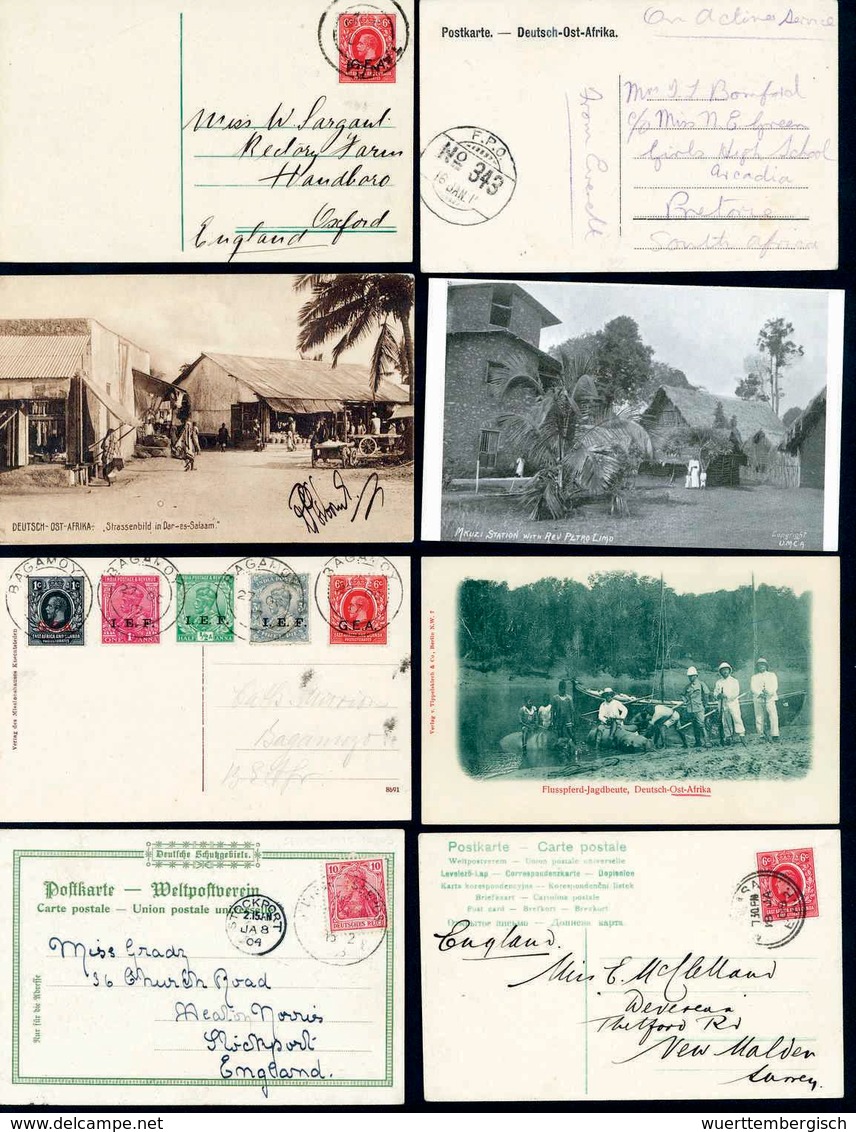 G.E.A.
Miss W Sargant
Rectory Farm
Handboro
Oxford
England
Postkarte. — Deutsch-Ost-Afrika.
On Active Service
Mrs
Bomford
c/o Miss N. E. Green
Girls High School
Arcadia
Pretoria
South Africa
from
F.P.O
No 343
16 JAN.
DEUTSCH-OST-AFRIKA: „Strassenbild in Dar-es-Salaam."
MKUZI STATION WITH REV PETRO LIMO
Copyright
U.M.C.A
BAGAMOYO
1c 1c
EAST AFRICA AND UGANDA
INDIA POSTAGE & REVENUE
I.E.F.
ONE 1A ANNA
I.E.F.
HALF ½A ANNA
I.E.F.
6c 6c
G.E.A.
EAST AFRICA AND UGANDA
Bagamoyo
8b91
Verlag v. Tippelskirch & Co., Berlin N.W. 7
Flusspferd-Jagdbeute, Deutsch-Ost-Afrika
Deutsche Schutzgebiete.
Postkarte — Weltpostverein
Carte postale — Union postale universelle
Nur für die Adresse
STOCKPORT
2.15AM
JA 8
04
10 10
Miss Grady
36 Church Road
Heaton Norris
Stockport
England.
Postkarte — Carte postale
Weltpostverein — Union postale universelle
Levelező-Lap — Correspondenzkarte — Dopisnice
Karta korespondencyjna — Korespondenční lístek
Briefkaart — Cartolina postale
Post card — Brefkort — Brevkort
Открытое письмо — Дописна карта
6c 6c
England.
Miss E. McClelland
Thetford Rd
New Malden
Surrey.
wuerttembergisch